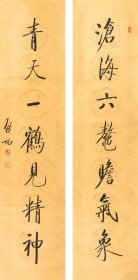 滄海六鰲瞻氣象
青天一鶴見精神
啟功